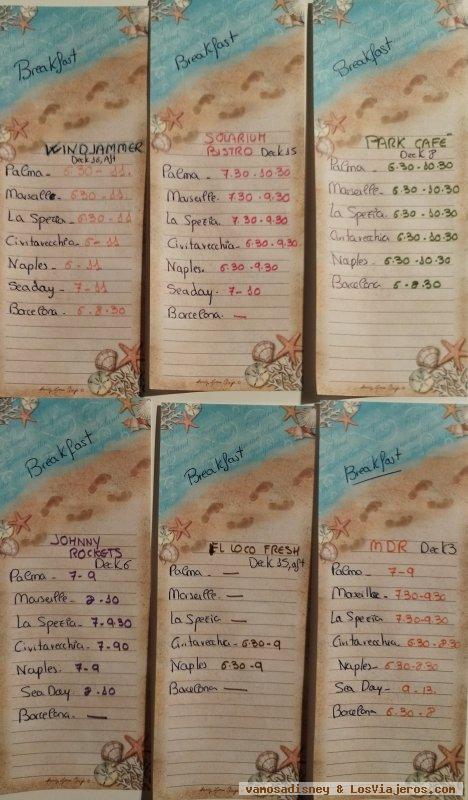 Breakfast
WINDJAMMER
Deck 16, Aft
Palma - 6.30 - 11.
Marseille. 6.30 - 11.
La Spezia - 6.30 - 11
Civitavecchia - 6 - 11
Naples - 6 - 11
Seaday - 7 - 11
Barcelona - 6 - 8.30
Breakfast
SOLARIUM
BISTRO Deck 15
Palma - 7.30 - 10.30
Marseille - 7.30 - 9.30
La Spezia - 7.30 - 9.30
Civitavecchia - 6.30 - 9.30
Naples. 6.30 - 9.30
Seaday - 7 - 10
Barcelona. —
Breakfast
PARK CAFE
Deck 8
Palma - 6.30 - 10.30
Marseille - 6.30 - 10.30
La Spezia. 6.30 - 10.30
Civitavecchia 6.30 - 10.30
Naples - 6.30 - 10.30
Barcelona 6 - 8.30
Breakfast
JOHNNY
ROCKETS
Deck 6
Palma - 7-9
Marseille - 8 - 10
La Spezia - 7 - 9.30
Civitavecchia - 7-90
Naples. 7-9
Sea Day. 8 - 10
Barcelona. —
Breakfast
EL LOCO FRESH
Deck 15, aft
Palma - —
Marseille. —
La Spezia —
Civitavecchia - 6.30 - 9
Naples 6.30 - 9
Barcelona —
Breakfast
MDR Deck 3
Palma - 7-9
Marseille - 7.30-9.30
La Spezia 7.30-9.30
Civitavecchia 6.30-8.30
Naples - 6.30-8.30
Sea Day - 9 - 13.
Barcelona 6.30 - 8
vamosadisney & LosViajeros.com